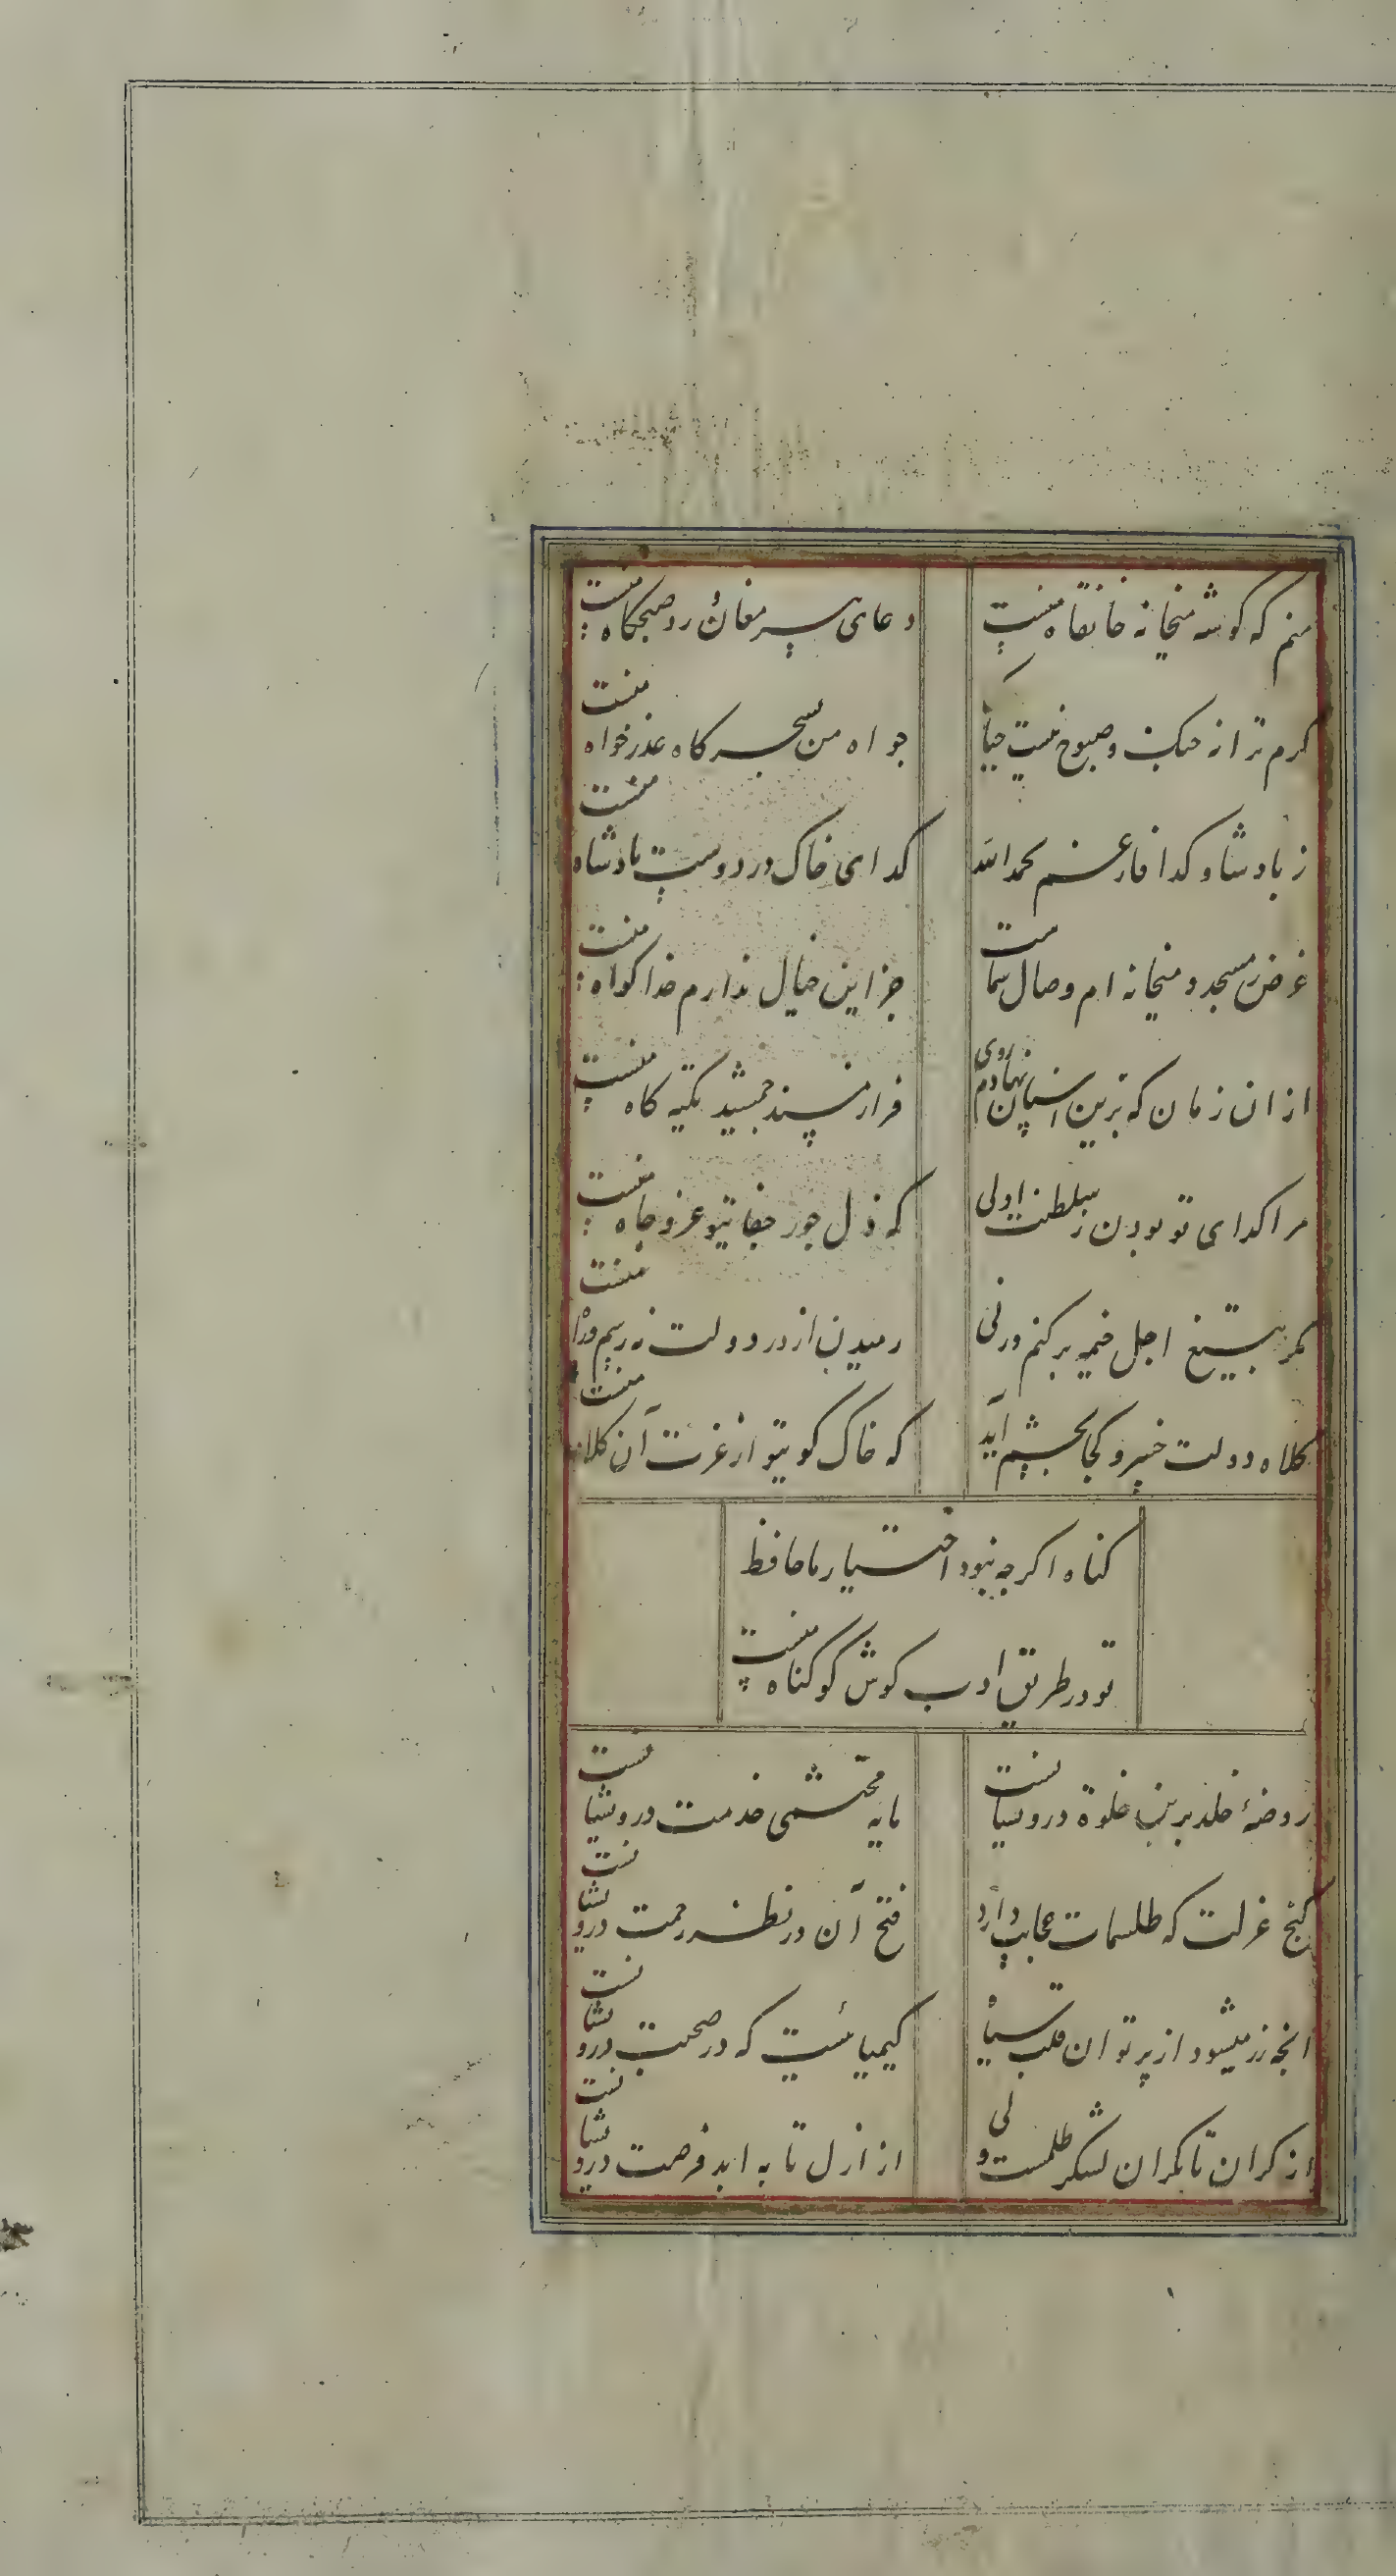 منم که گوشه میخانه خانقاه منست
دعای پیر مغان ورد صبحکاه منست
کرم ترانه چنک و صبوح نیست چباک
جواه من بسحرکاه عذرخواه منست
ز بادشاه و کدا فارغم بحمدالله
کدای خاک در دوست بادشاه منست
غرض ز مسجد و میخانه ام وصال شماست
جز این خیال ندارم خدا کواه منست
از ان زمان که برین استان نهادم روی
فراز مسند جمشید تکیه کاه منست
مرا کدای تو بودن ز سلطنت اولی
که ذل جور جفا تیو عز و جاه منست
مکر بتیغ اجل خیمه برکنم ورنی
رمیدن از در دولت نه رسم و راه منست
کلاه دولت خسرو کجا بچشم آید
که خاک کو یتو از عزت آن کلاه منست
کناه اکرچه نبود اختیار ما حافظ
تو در طریق ادب کوش کو کناه منست
روضهٔ خلد برین خلوة درویشانست
مایه محتشمی خدمت درویشانست
کنج عزلت که طلسمات عجایب دارد
فتح آن در نظر رحمت درویشانست
انچه زر میشود از پرتو ان قلب سیاه
کیمیائیست که در صحبت درویشانست
از کران تا بکران لشکر ظلمست ولی
از ازل تا به ابد فرصت درویشانست